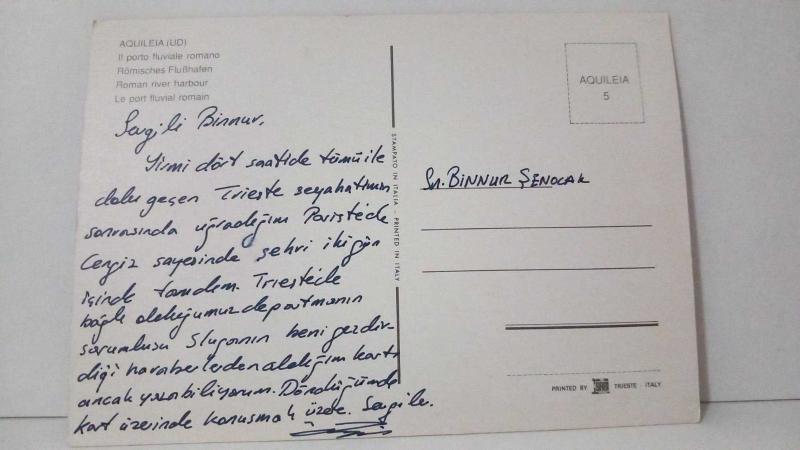 AQUILEIA (UD)
Il porto fluviale romano
Römisches Flußhafen
Roman river harbour
Le port fluvial romain
Sevgili Binnur,
Yirmi dört saatide tümüile
dolu geçen Trieste seyahatımın
sonrasında uğradığım Pariste'de
Cengiz sayesinde şehri iki gün
içinde tanıdım. Trieste'de
bağlı olduğumuz departmanın
sorumlusu Slugonın beni gezdir-
diği harabelerden aldığım kartı
ancak yazabiliyorum. Döndüğümde
kart üzerinde konuşmak üzere. Sevgiler.
STAMPATO IN ITALIA - PRINTED IN ITALY
AQUILEIA
5
Sn. BINNUR ŞENOCAK
PRINTED BY TRIESTE - ITALY